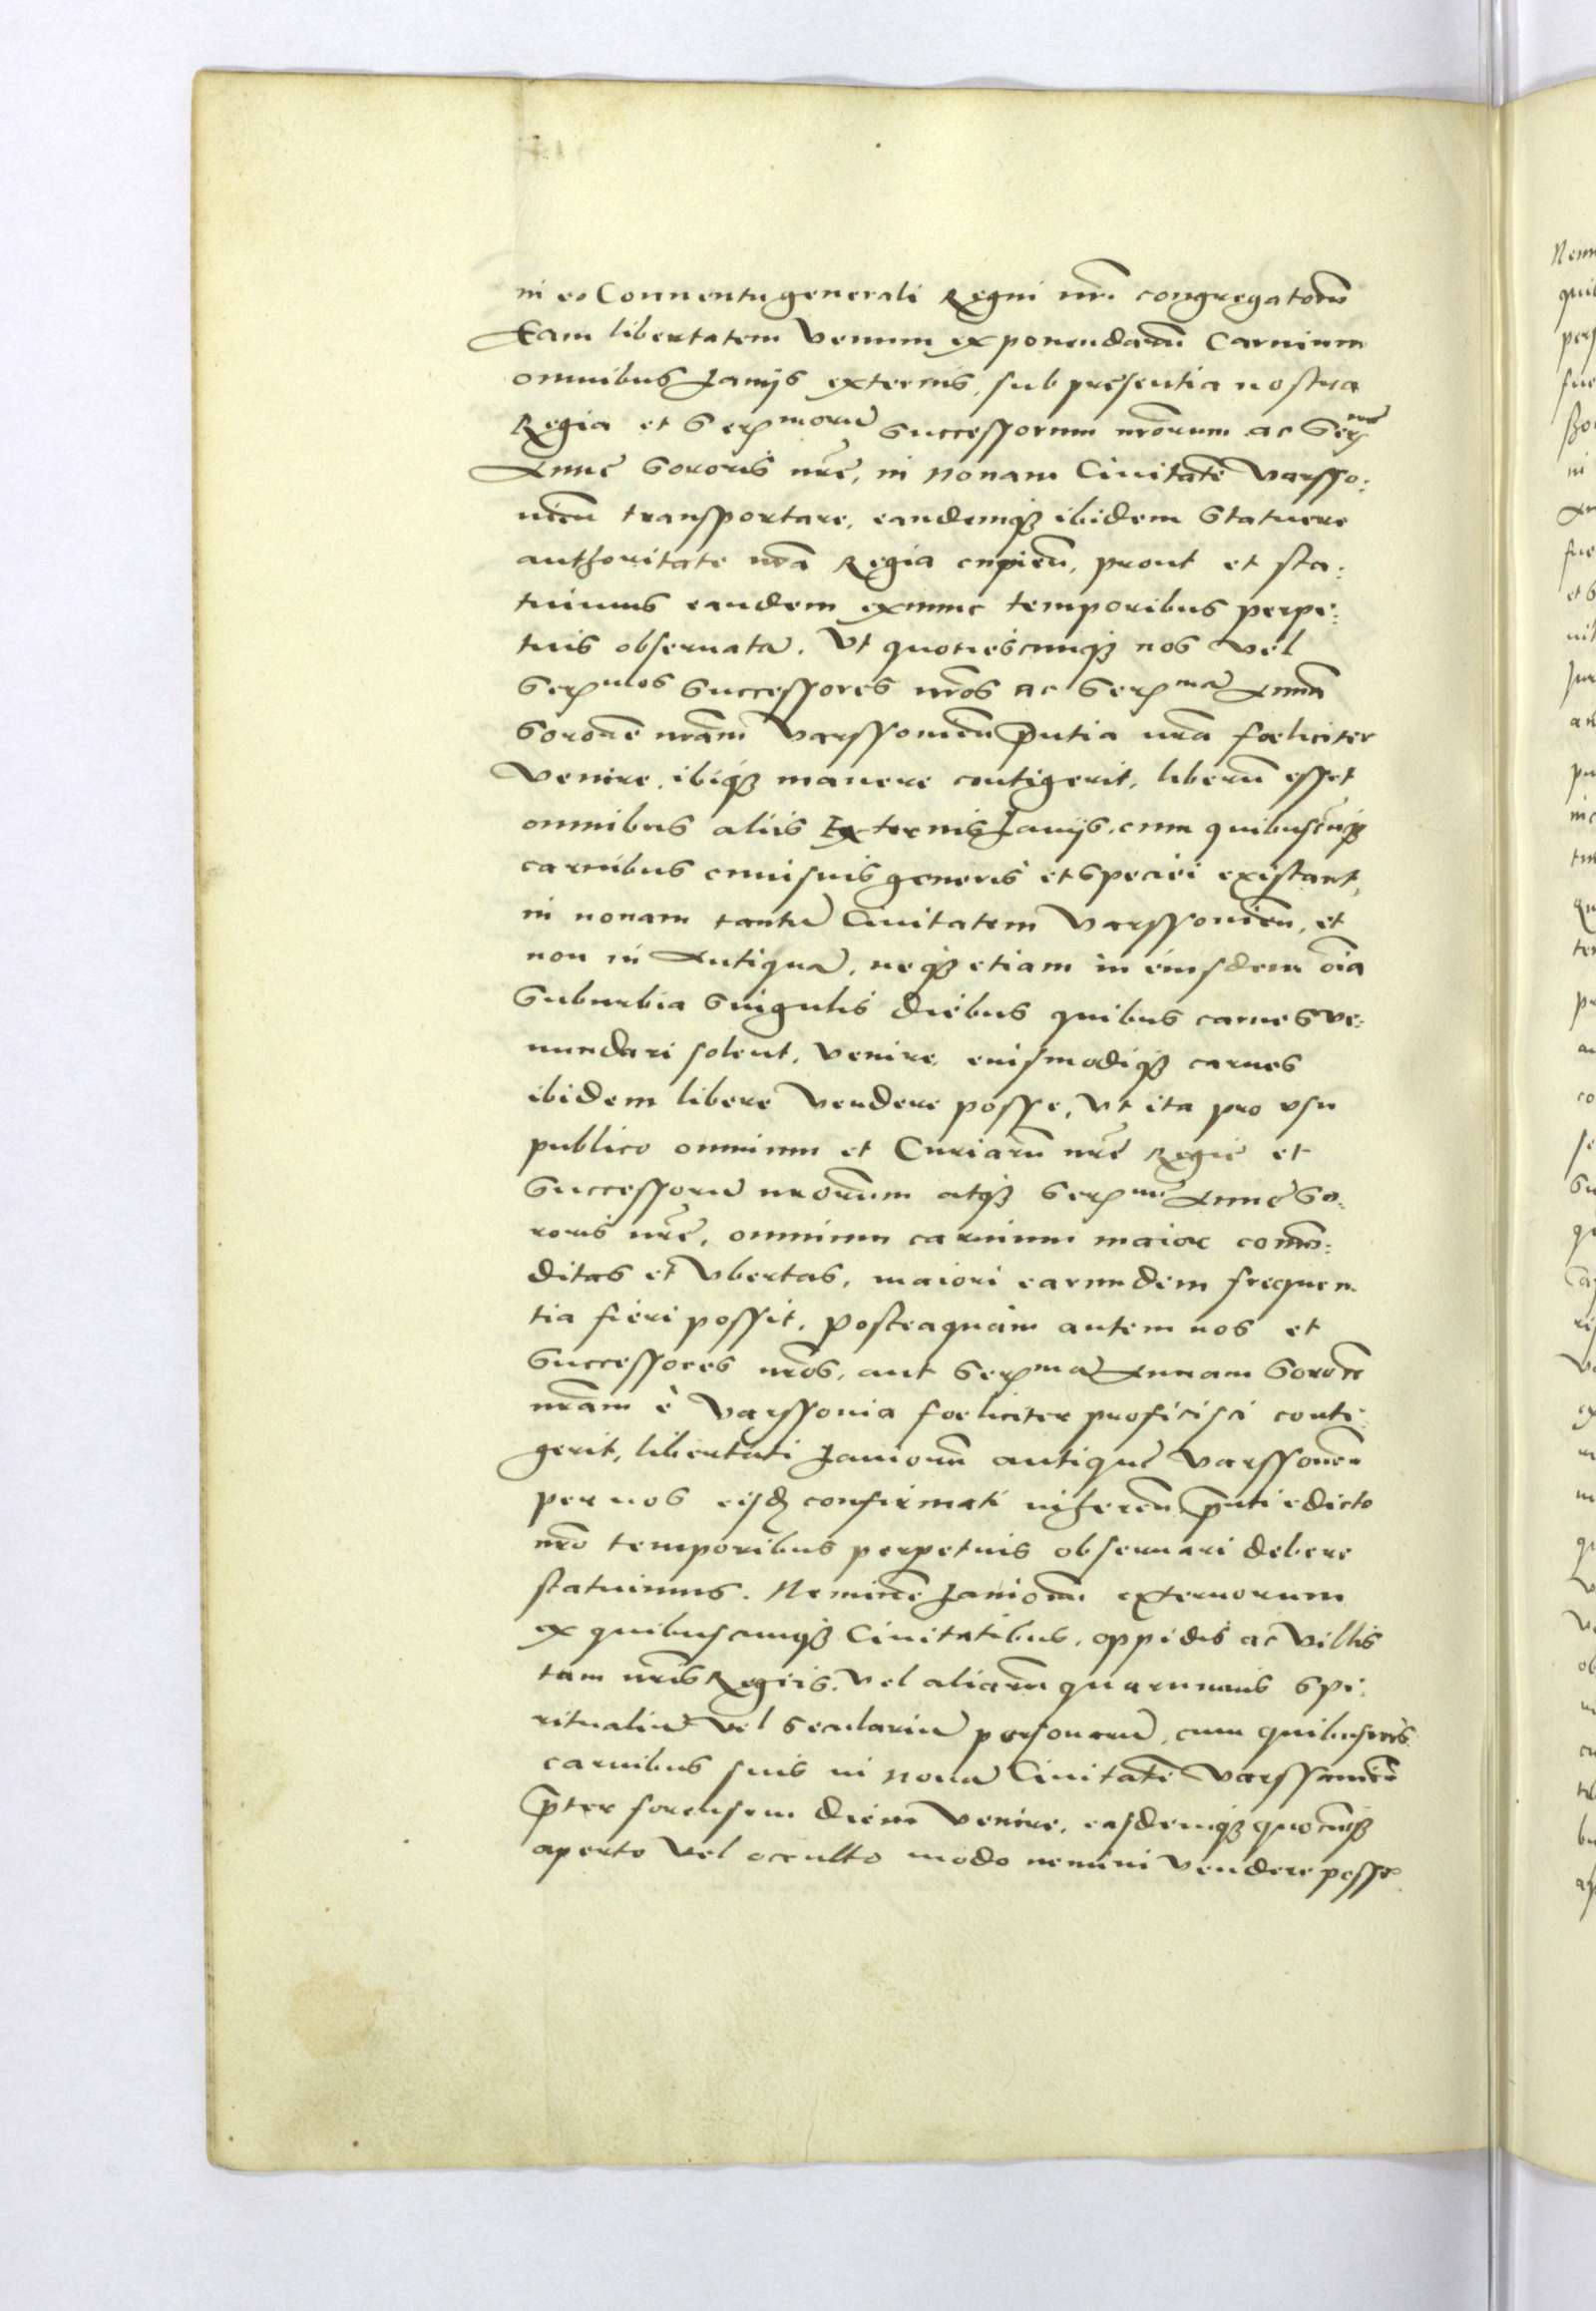 in eo Conuentu generali Regni nrı̃ congregatorũ
Eam libertatem venum exponendarũ Carnium
omnibus Lanijs externis, sub presentia nostra
Regia et Serᵐᵒʳũ Successorum nrõrum ac Serᵐᵉ
Annę Sororis nrę̃, in nouam Ciuitatẽ Varsso:
uień transportare, eandemq̃ ibidem Statuere
authoritate nrã Regia cupień, prout et sta:
tuimus eandem exnunc temporibus perpe:
tuis obseruatã. Vt quotiescunq̃ nos vel
Serᵐᵒˢ Successores nrõs ac Serᵐã Annã
Sororẽ nrãm Varssouień p̃ntia nrã foeliciter
venire, ibiq̃ manere contigerit, liberũ esset
omnibus aliis Externis Lanijs, cum quibuscũq̃
carnibus cuiusuis generis et speciei existant,
in nouam tantũ Ciuitatem Varssouień, et
non in Antiquã, neq̃ etiam in eiusdem oı̃a
Suburbia Singulis diebus quibus carnes ve:
nundari solent, venire, euismodiq̃ carnes
ibidem libere vendere posse, vt ita pro vsu
publico omnium et Curiarũ nrę̃ Regię et
Successorũ nrõrum atq̃ Serᵐᵉ Annę So:
roris nrę̃, omnium carnium maior comõ:
ditas et vbertas, maiori earundem frequen
tia fieri possit. Posteaquam autem nos et
Successores nrõs, aut Serᵐã Annam Sororẽ
nrãm è Varssouia foeliciter proficisci conti
gerit, libertati Lanionũ antiquę Varssouień
per nos eisd̃ confirmati inhereń p̃nti edicto
nrõ temporibus perpetuis obseruari debere
statuimus. Neminẽ Lanionũ externorum
ex quibuscunq̃ Ciuitatibus, oppidis ac villis
tam nrı̃s Regiis, vel aliarũ quarumuis Spi:
ritualiũ vel Seculariũ personarũ, cum quibusuis
carnibus suis in nouã Ciuitatẽ Varssouień
p̃ter forensem diem venire, easdemq̃ quocũq̃
aperto vel occulto modo nemini vendere posse.